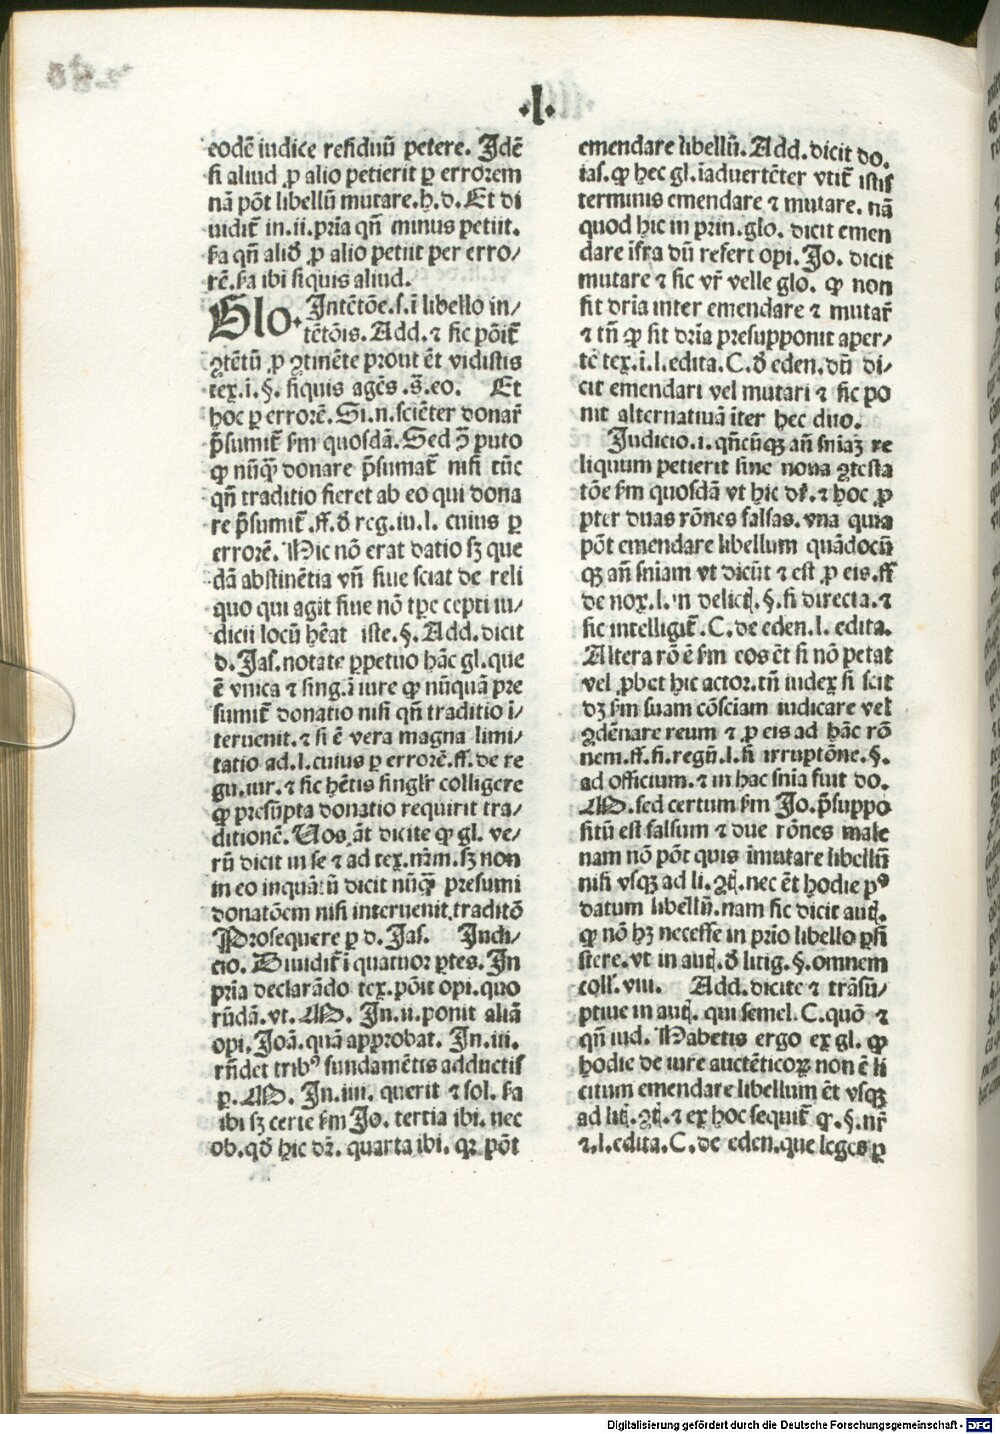 ·l·
eodē iudice residuū petere. Jdē
si aliud ꝓ alio petierit ꝑ errorem
nā pōt libellū mutare.h.d.Et di
uidit̄ in.ii.pria qn̄ minus petiit.
ẜa qn̄ aliđ ꝓ alio petiit per erro/
rē.ẜa ibi siquis aliud.
Glo. Jntētōe.s.ī libello in/
tētōis. Add.⁊ sic pōit̄
ꝯtētū ꝓ ꝯtinēte prout ēt vidistis
tex.i.§. siquis agēs .s̄.eo. Et
hoc ꝑ errorē. Si.n.sciēter donar̄
p̄sumit̄ ẜm quosdā. Sed ꝯ̄ puto
ꝙ nūꝙ̄ donare p̄sumat̄ nisi tūc
qn̄ traditio fieret ab eo qui dona
re p̄sumit̄ .ff.đ reg.iu.l. cuius ꝑ
errorē. Hic nō erat datio sꝫ que
dā abstinētia vn̄ siue sciat de reli
quo qui agit siue nō tꝑe cepti iu/
dicii locū hēat iste.§. Add.dicit
d. Jas.notate ꝑpetuo hāc gl.que
ē vnica ⁊ sing.ī iure ꝙ nūquā pre
sumit̄ donatio nisi qn̄ traditio ī/
teruenit.⁊ si ē vera magna limi/
tatio ad.l.cuius ꝑ errorē.ff.de re
gu.iur.⁊ sic hētis singlr̄ colligere
ꝙ presūpta donatio requirit tra/
ditionē. Uos āt dicite ꝙ gl. ve/
rū dicit in se ⁊ ad tex.nr̄m.sꝫ non
in eo inquātū dicit nūꝙ̄ presumi
donatōem nisi interuenit traditō
Prosequere ꝑ d. Jas. Judi/
cio. Diuidit̄ ī quatuor ꝑtes. Jn
pria declarādo tex.pōit opi.quo
rūdā.vt. M. Jn.ii.ponit aliā
opi.Joā.quā approbat. Jn.iii.
rn̄det tribꝰ fundamētis adductis
ꝑ. M. Jn.iiii. querit ⁊ sol. ẜa
ibi sꝫ certe ẜm Jo. tertia ibi. nec
ob.qđ hic dr̄. quarta ibi. qꝛ pōt
emendare libellū. Add.dicit do.
ias.ꝙ hec gl.īaduertēter vtit̄ istis
terminis emendare ⁊ mutare. nā
quod hic in prin.glo. dicit emen
dare īfra dū refert opi. Jo. dicit
mutare ⁊ sic vr̄ velle glo. ꝙ non
sit dr̄ia inter emendare ⁊ mutar̄
⁊ tn̄ ꝙ sit dr̄ia presupponit aper/
tē tex.i.l.edita.C.đ eden.dū di/
cit emendari vel mutari ⁊ sic po
nit alternatiuā īter hec duo.
Judicio.i.qn̄cūqꝫ an̄ sn̄iaꝫ re
liquum petierit sine noua ꝯtesta
tōe ẜm quosdā vt hic dr̄.⁊ hoc ꝓ
pter duas rōnes falsas.vna quia
pōt emendare libellum quādocū
qꝫ an̄ sn̄iam vt dicūt ⁊ est ꝓ eis.ff
de nox.l.in delictꝭ.§.si directa.⁊
sic intelligit̄.C.de eden.l. edita.
Altera rō ē ẜm eos ēt si nō petat
vel ꝓbet hic actor.tn̄ iudex si scit
dꝫ ẜm suam cōsciam iudicare vel
ꝯdēnare reum ⁊ ꝓ eis ad hāc rō
nem.ff.fi.regū.l.si irruptōne.§.
ad officium.⁊ in hac sn̄ia fuit do.
M.sed certum ẜm Jo.p̄suppo
situ est falsum ⁊ due rōnes male
nam nō pōt quis īmutare libellū
nisi vsqꝫ ad li.ꝯtꝭ.nec ēt hodie pꝰ
datum libellū.nam sic dicit autꝭ.
ꝙ nō hꝫ necesse in prio libello ꝑsi
stere.vt in autꝭ.đ litig.§.omnem
coll.viii. Add.dicite ⁊ trāsū/
ptiue in autꝭ. qui semel.C.quō ⁊
qn̄ iud. Habetis ergo ex gl. ꝙ
hodie de iure auctēticoꝝ non ē li
citum emendare libellum ēt vsqꝫ
ad litꝭ.ꝯtꝭ.⁊ ex hoc sequit̄ ꝙ.§.nr̄
⁊.l.edita.C.de eden.que leges ꝑ
Digitalisierung gefördert durch die Deutsche Forschungsgemeinschaft - DFG